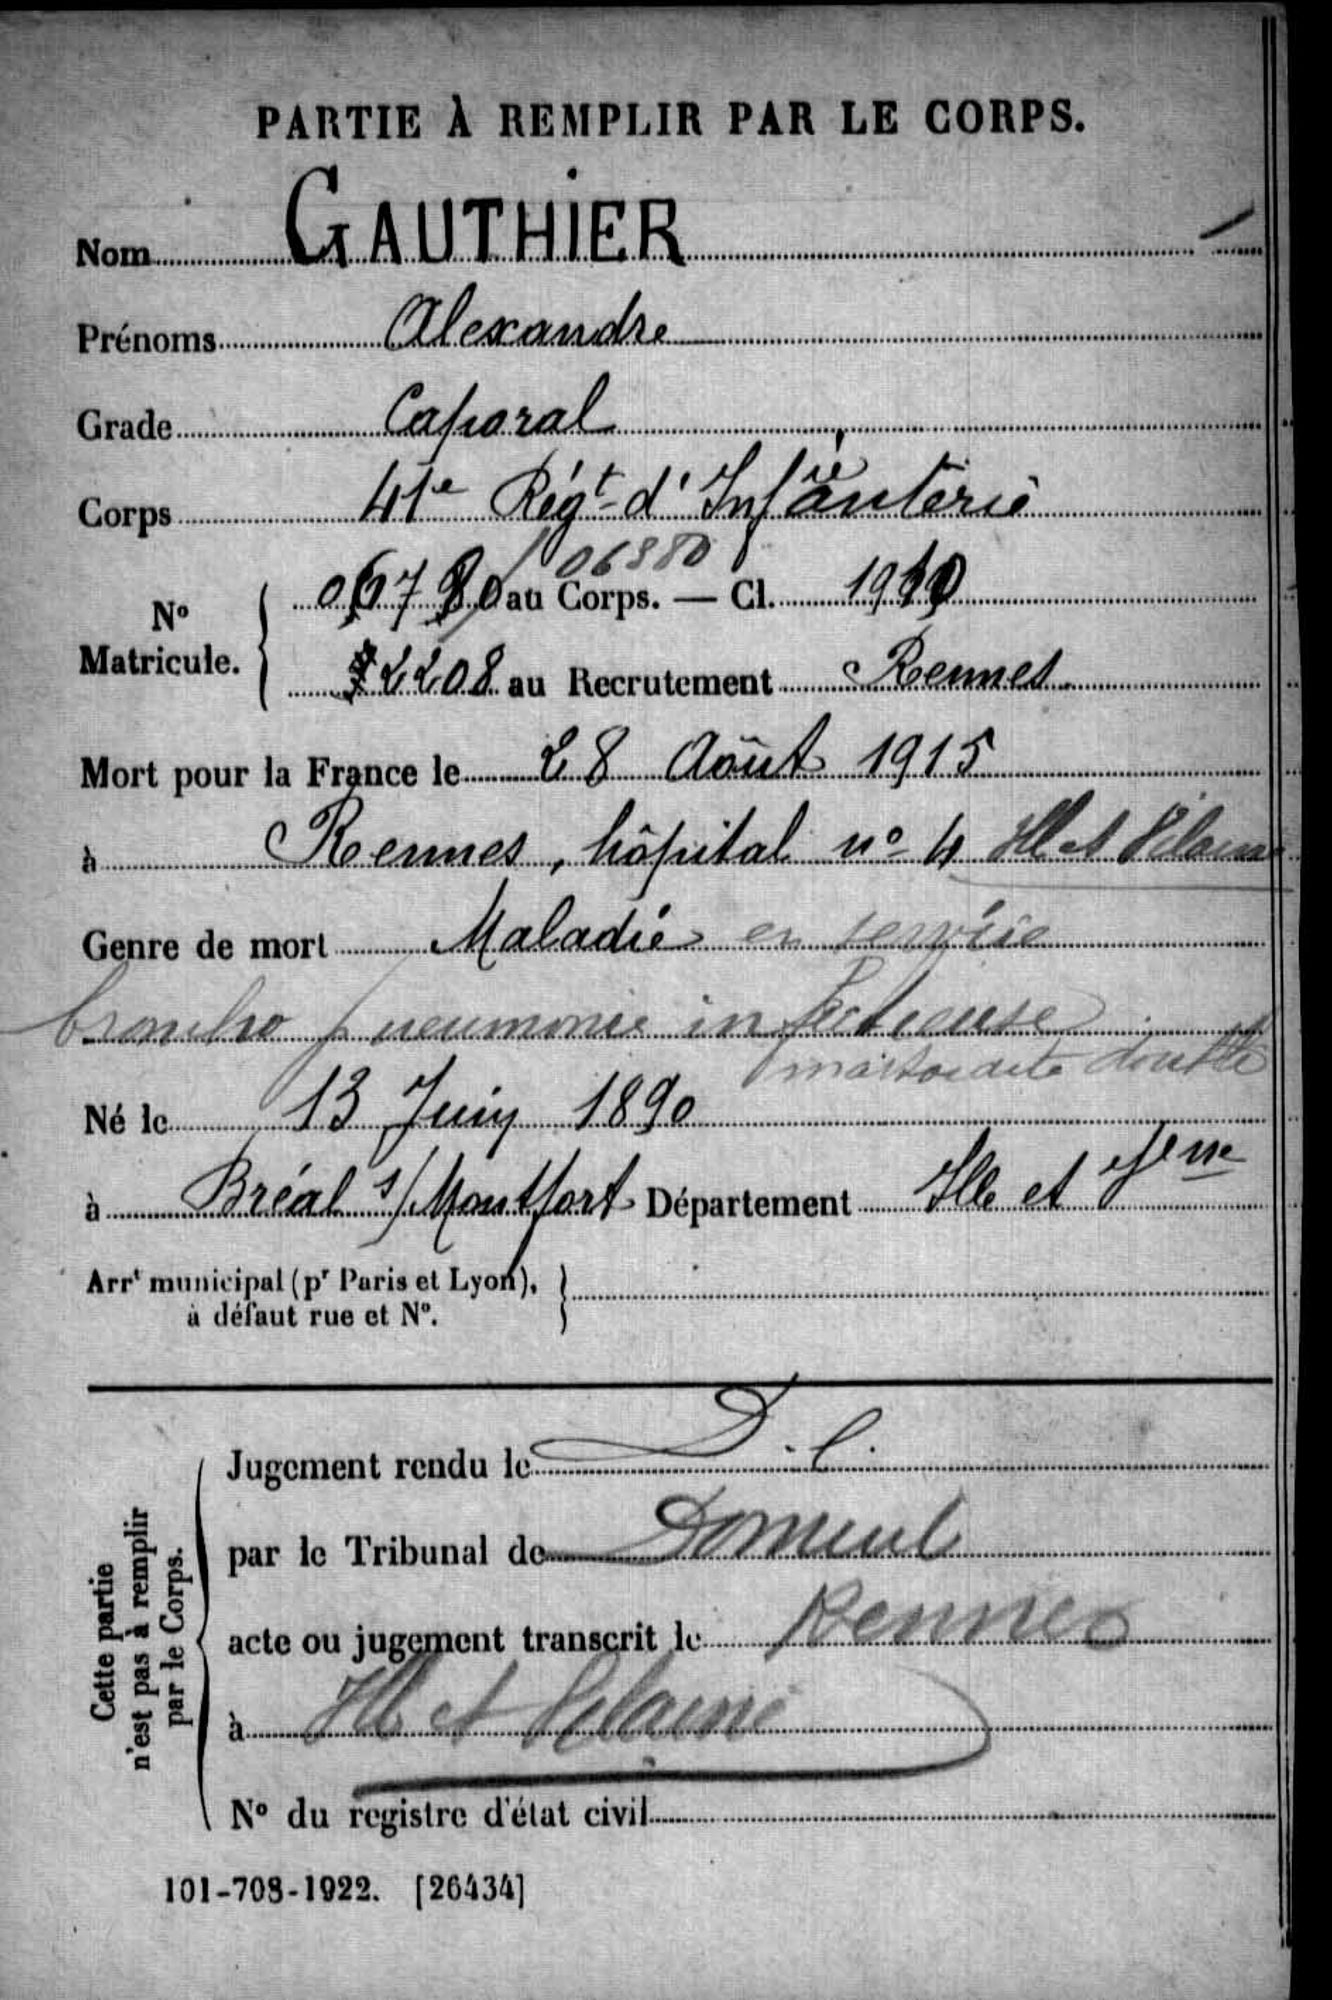 PARTIE À REMPLIR PAR LE CORPS.
Nom GAUTHIER
Prénoms Alexandre
Grade Caporal
Corps 41e Régt d'Infanterie
06880
N° Matricule. au Corps. — Cl. 1910
2208 au Recrutement Rennes
Mort pour la France le 28 Août 1915
à Rennes, hôpital n° 4 Ille et Vilaine
Genre de mort Maladie en service
broncho pneumonie infectieuse
mastoidite double
Né le 13 Juin 1890
à Bréal s/ Montfort Département Ille et Vne
Arrt municipal (pr Paris et Lyon),
à défaut rue et N°.
Cette partie
n'est pas à remplir
par le Corps.
Jugement rendu le D.C.
par le Tribunal de Domicile
acte ou jugement transcrit le Rennes
à Ille et Vilaine
N° du registre d'état civil
101-708-1922. [26434]